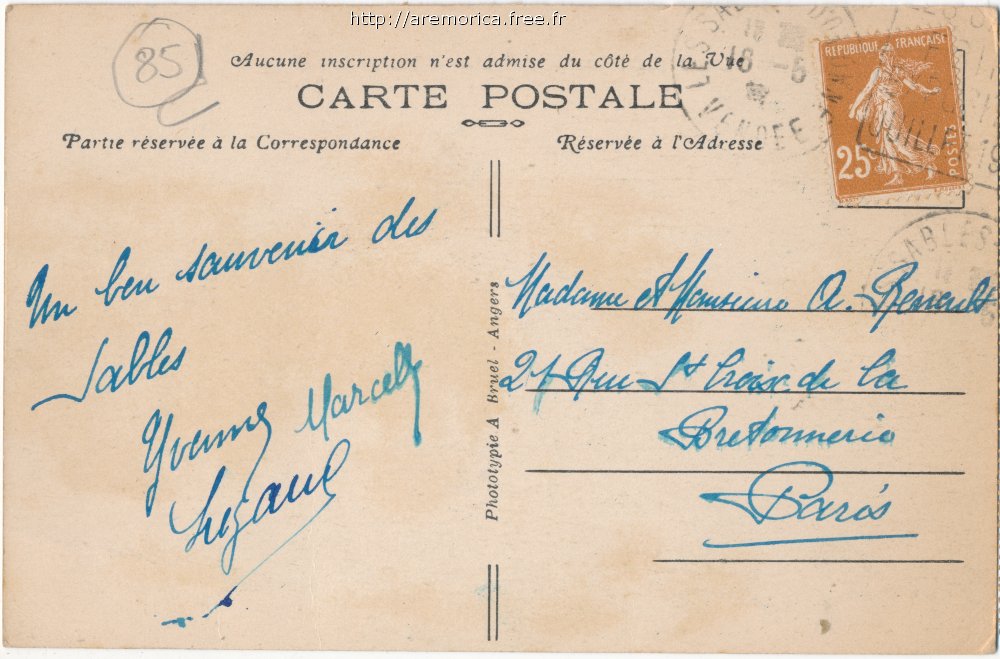 http://aremorica.free.fr
85
Aucune inscription n'est admise du côté de la Vue
CARTE POSTALE
Partie réservée à la Correspondance
Réservée à l'Adresse
REPUBLIQUE FRANÇAISE
25
POSTES
VENDEE
Un bon souvenir des
Sables
Yvonne Marcelle
Suzanne
Phototypie A Bruel - Angers
Madame et Monsieur A. Renault
21 Rue St Croix de la
Bretonnerie
Paris
SABLES